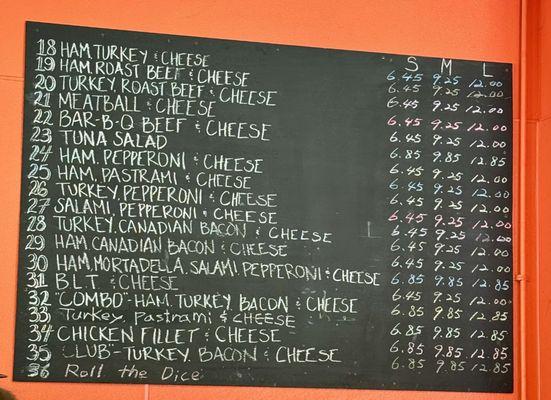 S M L
18 HAM, TURKEY & CHEESE 6.45 9.25 12.00
19 HAM, ROAST BEEF & CHEESE 6.45 9.25 12.00
20 TURKEY, ROAST BEEF & CHEESE 6.45 9.25 12.00
21 MEATBALL & CHEESE 6.45 9.25 12.00
22 BAR-B-Q BEEF & CHEESE 6.45 9.25 12.00
23 TUNA SALAD 6.85 9.85 12.85
24 HAM, PEPPERONI & CHEESE 6.45 9.25 12.00
25 HAM, PASTRAMI & CHEESE 6.45 9.25 12.00
26 TURKEY, PEPPERONI & CHEESE 6.45 9.25 12.00
27 SALAMI, PEPPERONI & CHEESE 6.45 9.25 12.00
28 TURKEY, CANADIAN BACON & CHEESE 6.45 9.25 12.00
29 HAM, CANADIAN BACON & CHEESE 6.45 9.25 12.00
30 HAM, MORTADELLA, SALAMI, PEPPERONI & CHEESE 6.45 9.25 12.00
31 B.L.T. & CHEESE 6.85 9.85 12.85
32 "COMBO"-HAM, TURKEY, BACON & CHEESE 6.45 9.25 12.00
33 Turkey, Pastrami & CHEESE 6.85 9.85 12.85
34 CHICKEN FILLET & CHEESE 6.85 9.85 12.85
35 "CLUB"-TURKEY, BACON & CHEESE 6.85 9.85 12.85
36 Roll the Dice 6.85 9.85 12.85